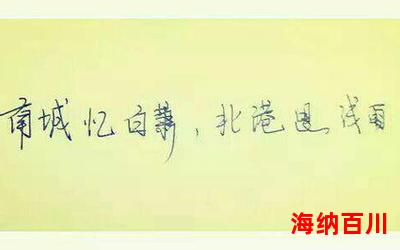 南城忆白，北港思浅雨
海纳百川